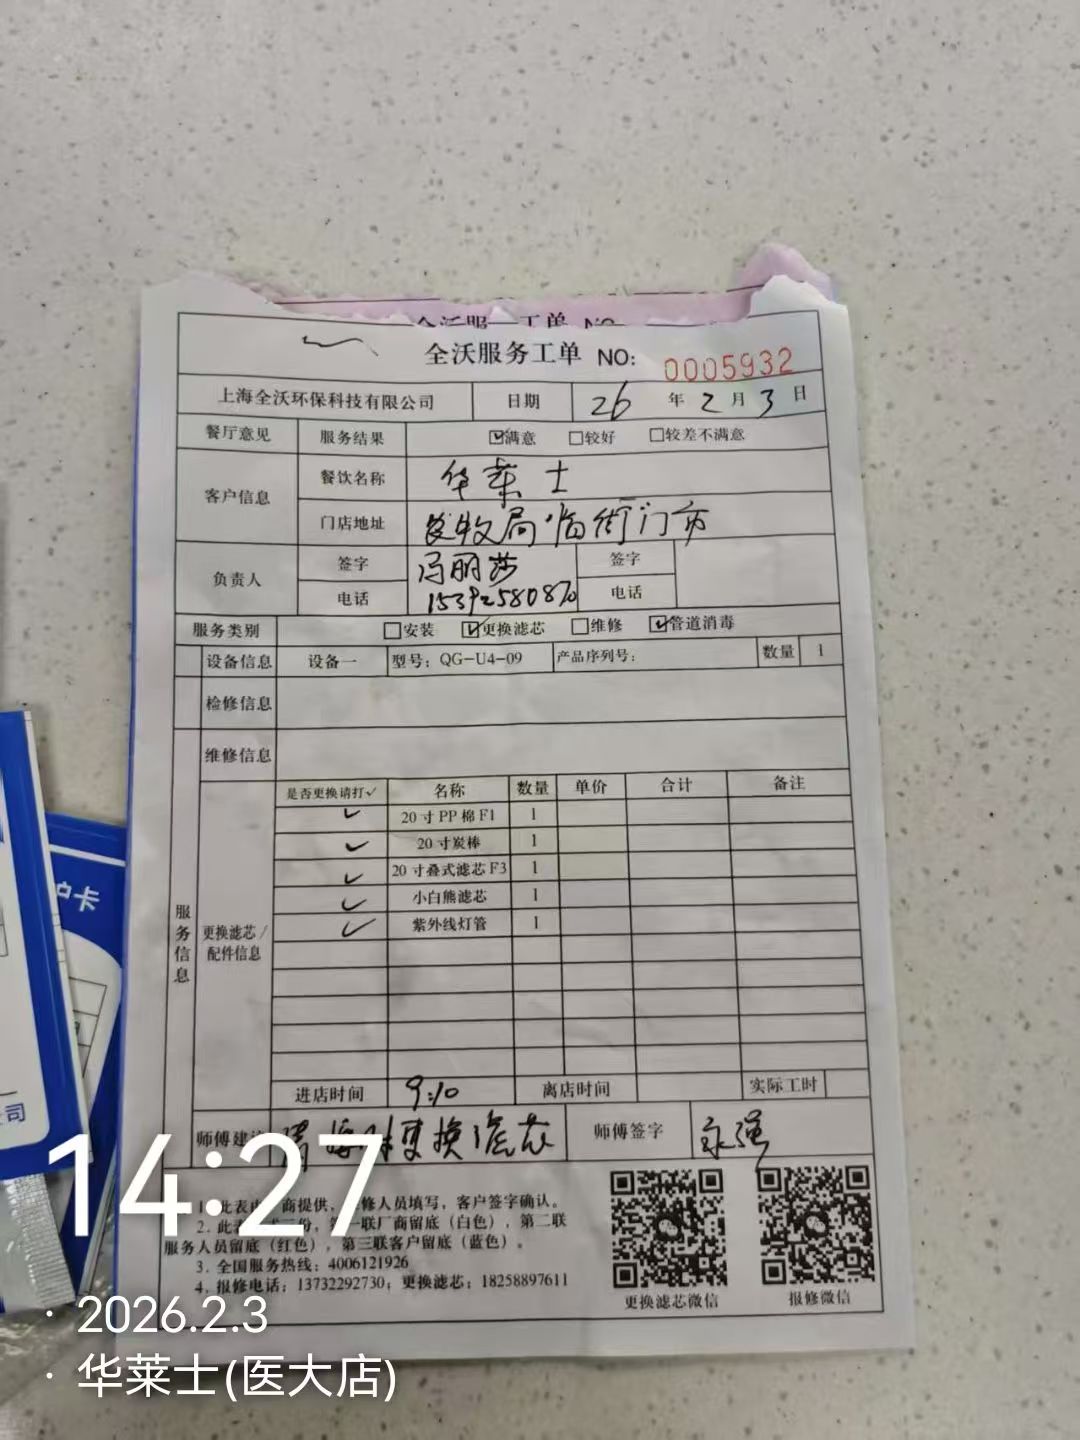 全沃服务工单 NO:
全沃服务工单 NO: 0005932
上海全沃环保科技有限公司 日期 26 年 2 月 3 日
餐厅意见 服务结果 ☑满意 □较好 □较差不满意
客户信息 餐饮名称 华莱士
门店地址 农牧局临街门市
负责人 签字 冯丽莎 签字
电话 15392580870 电话
服务类别 □安装 ☑更换滤芯 □维修 ☑管道消毒
设备信息 设备一 型号：QG-U4-09 产品序列号： 数量 1
检修信息
维修信息
服务信息
更换滤芯/配件信息
是否更换请打✓ 名称 数量 单价 合计 备注
✓ 20寸PP棉F1 1
✓ 20寸炭棒 1
✓ 20寸叠式滤芯F3 1
✓ 小白熊滤芯 1
✓ 紫外线灯管 1
进店时间 9:10 离店时间 实际工时
师傅建议 更换滤芯 师傅签字 永强
1. 此表由 商提供， 修人员填写，客户签字确认。
2. 此 份，第一联厂商留底（白色），第二联
服务人员留底（红色），第三联客户留底（蓝色）。
3. 全国服务热线：4006121926
4. 报修电话：13732292730；更换滤芯：18258897611
更换滤芯微信 报修微信
卡
司
14:27
· 2026.2.3
· 华莱士(医大店)